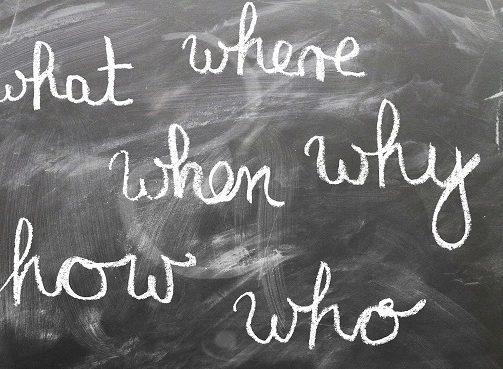 where
what
when
why
how
who